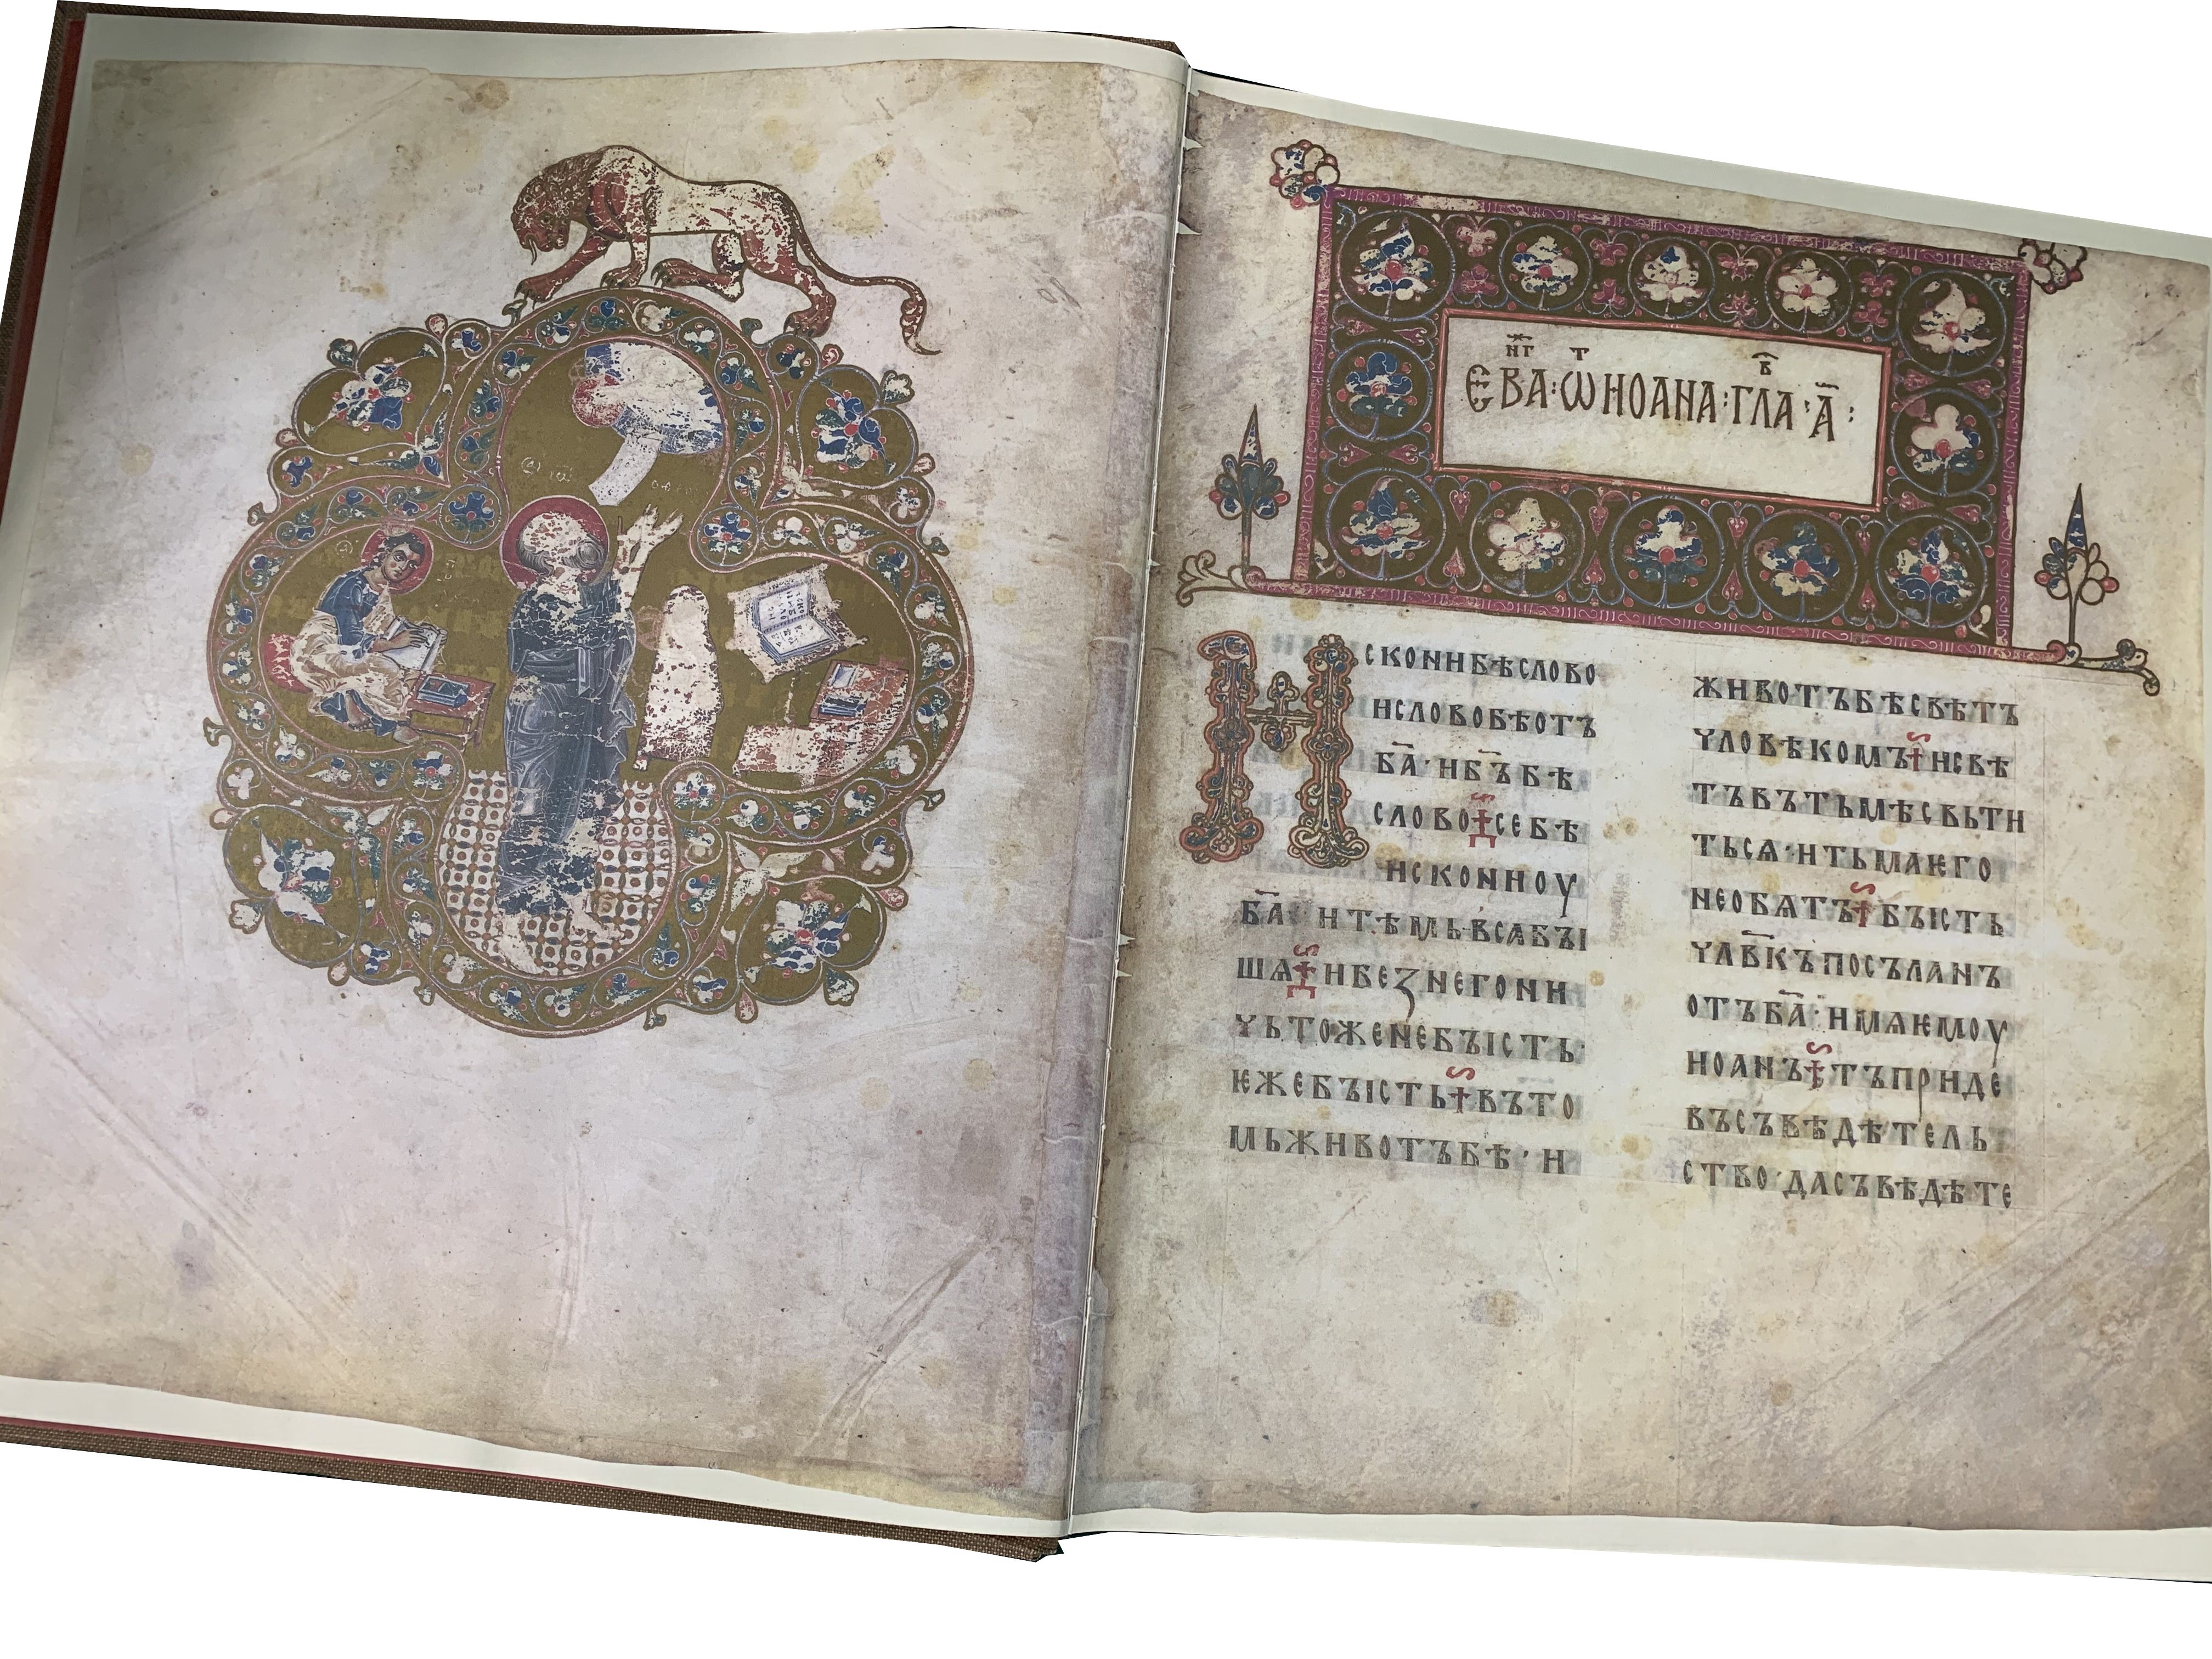 ЕВА҃НГ:ѠТ ИОАНА:ГЛА В:А҃:
ИСКОНИБѢСЛОВО
ИСЛОВОБѢОТЪ
БА҃·ИБ҃ЪБѢ
СЛОВОСЕБѢ
ИСКОНИОУ
БА҃ ИТѢМЬВСѦБЪІ
ШѦИБЕЗНЕГОНИ
ЧЬТОЖЕНЕБЪІСТЬ·
ѤЖЕБЪІСТЬВЪТО
МЬЖИВОТЪБѢ·И
ЖИВОТЪБѢСВѢТЪ
ЧЛОВѢКОМЪИСВѢ
ТЪВЪТЬМѢСВЬТИ
ТЬСѦ·ИТЬМАѤГО
НЕОБѦТЪБЪІСТЬ
ЧЛВ҃КЪПОСЪЛАНЪ
ОТЪБА҃·ИМѦѤМОУ
ИОАНЪТЪПРИДЕ
ВЪСЪВѢДѢТЕЛЬ
СТВО·ДАСЪВѢДѢТЕ